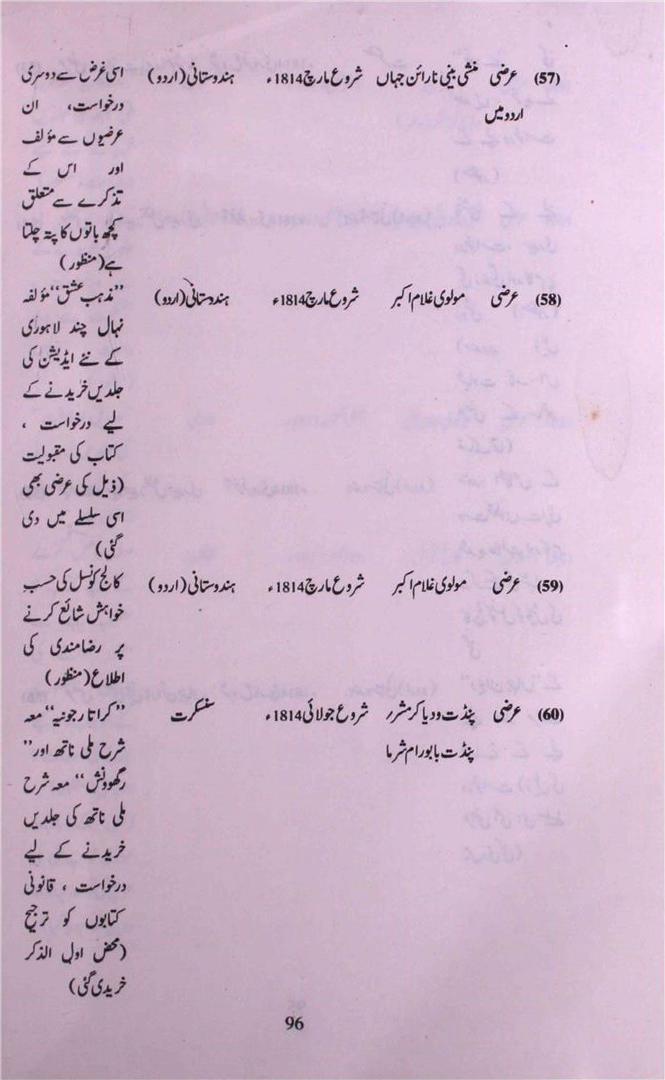 (57) عرضی منشی بینی نارائن جہاں شروع مارچ 1814ء ہندوستانی (اردو) اسی غرض سے دوسری
اردو میں درخواست، ان
عرضیوں سے مؤلف
اور اس کے
تذکرے سے متعلق
کچھ باتوں کا پتہ چلتا
ہے (منظور)
(58) عرضی مولوی غلام اکبر شروع مارچ 1814ء ہندوستانی (اردو) "مذہب عشق" مؤلفہ
نہال چند لاہوری
کے نئے ایڈیشن کی
جلدیں خریدنے کے
لیے درخواست ،
کتاب کی مقبولیت
(ذیل کی عرضی بھی
اسی سلسلے میں دی
گئی)
(59) عرضی مولوی غلام اکبر شروع مارچ 1814ء ہندوستانی (اردو) کالج کونسل کی حسب
خواہش شائع کرنے
پر رضامندی کی
اطلاع (منظور)
(60) عرضی پنڈت ودیا کرمشرر شروع جولائی 1814ء سنسکرت "کراتا رجونیہ" معہ
پنڈت بابو رام شرما شرح ملی ناتھ اور"
رگھوونش" معہ شرح
ملی ناتھ کی جلدیں
خریدنے کے لیے
درخواست ، قانونی
کتابوں کو ترجیح
(محض اول الذکر
خریدی گئی)
96